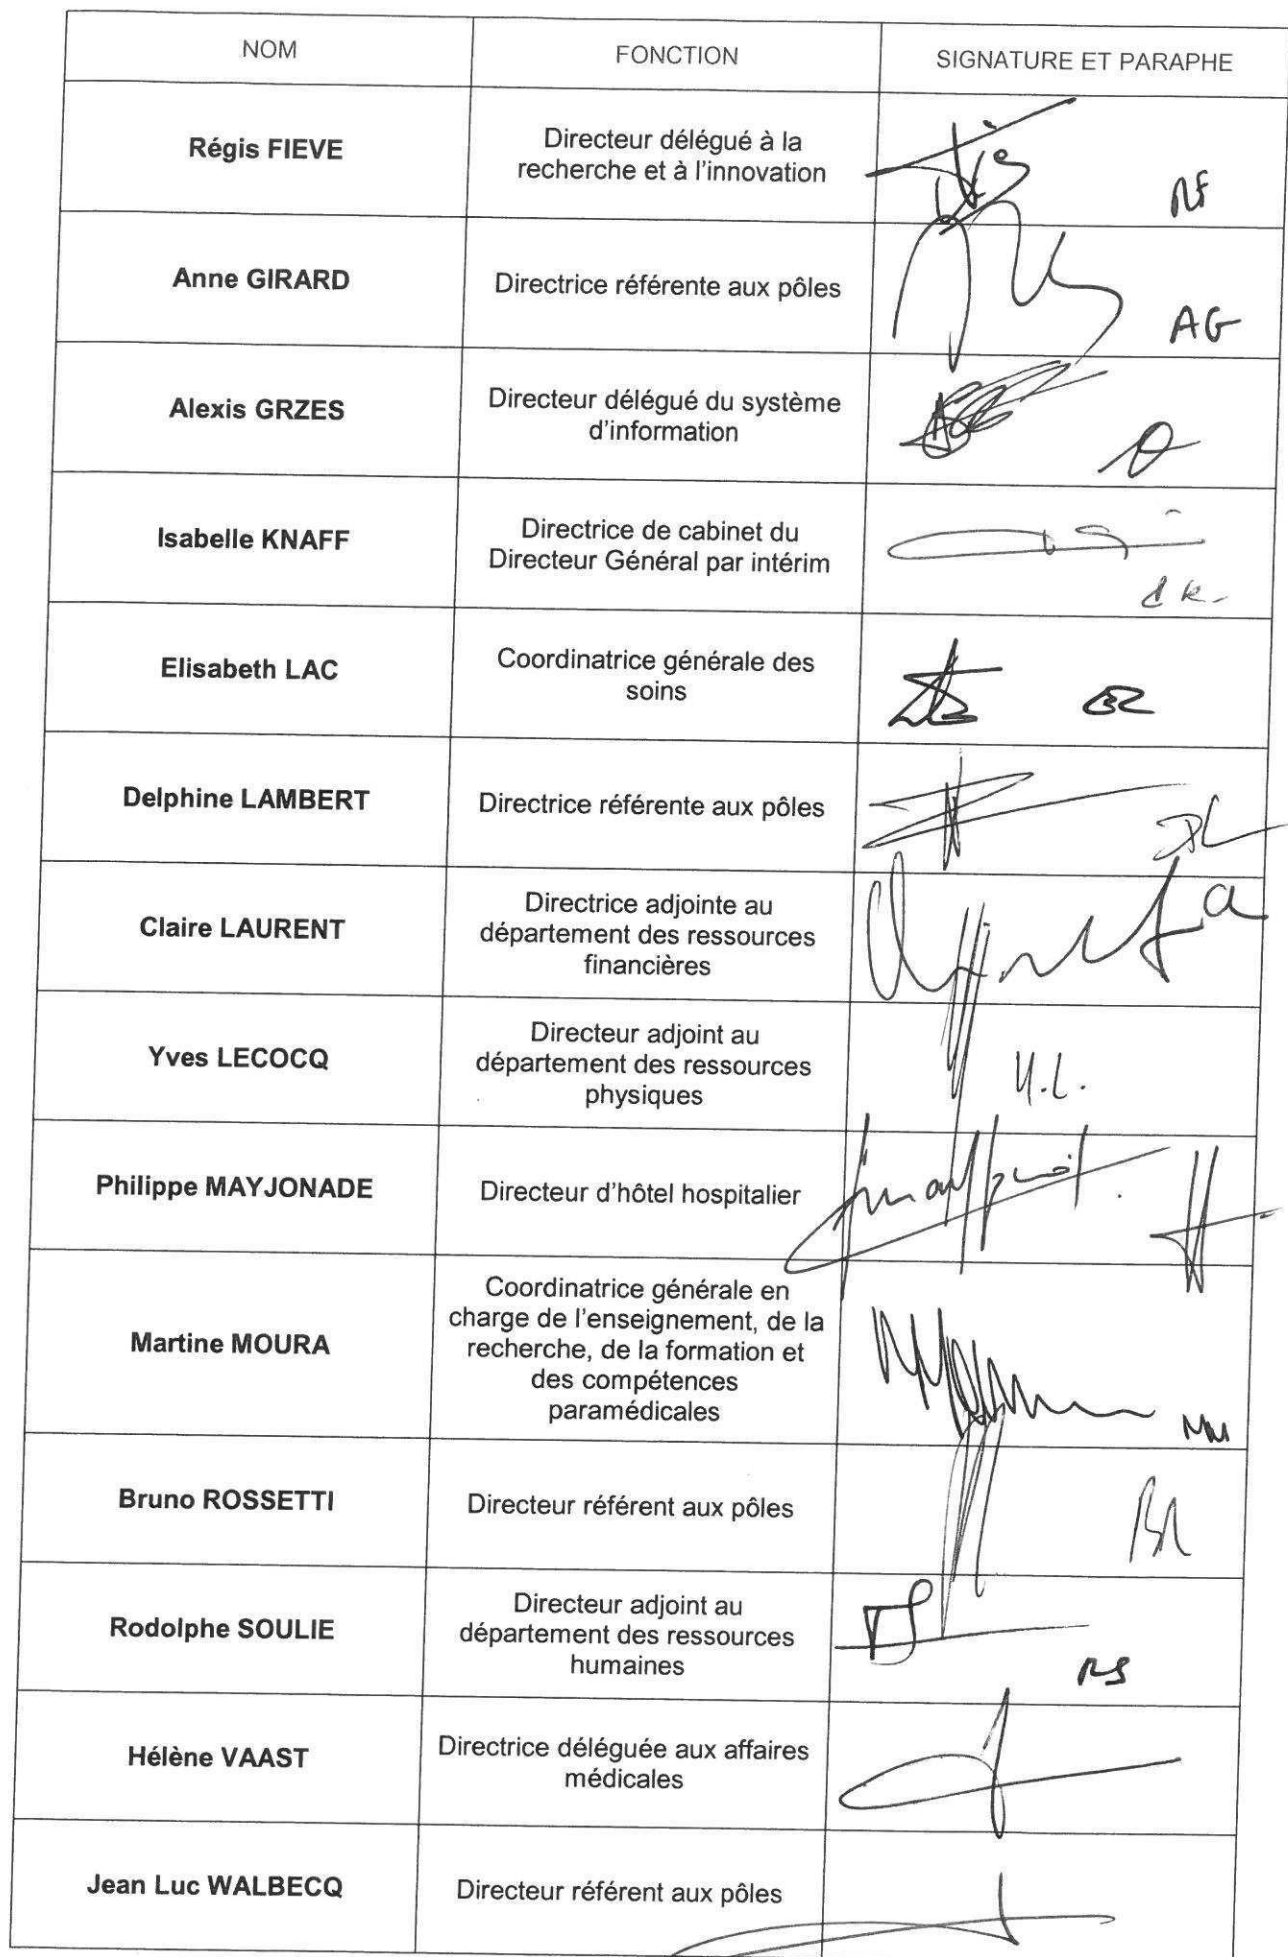 NOM
FONCTION
SIGNATURE ET PARAPHE
Régis FIEVE
Directeur délégué à la
recherche et à l'innovation
RF
Anne GIRARD
Directrice référente aux pôles
AG
Alexis GRZES
Directeur délégué du système
d'information
Isabelle KNAFF
Directrice de cabinet du
Directeur Général par intérim
Elisabeth LAC
Coordinatrice générale des
soins
Delphine LAMBERT
Directrice référente aux pôles
DL
Claire LAURENT
Directrice adjointe au
département des ressources
financières
Yves LECOCQ
Directeur adjoint au
département des ressources
physiques
Y.L.
Philippe MAYJONADE
Directeur d'hôtel hospitalier
Martine MOURA
Coordinatrice générale en
charge de l'enseignement, de la
recherche, de la formation et
des compétences
paramédicales
MM
Bruno ROSSETTI
Directeur référent aux pôles
BR
Rodolphe SOULIE
Directeur adjoint au
département des ressources
humaines
RS
Hélène VAAST
Directrice déléguée aux affaires
médicales
Jean Luc WALBECQ
Directeur référent aux pôles